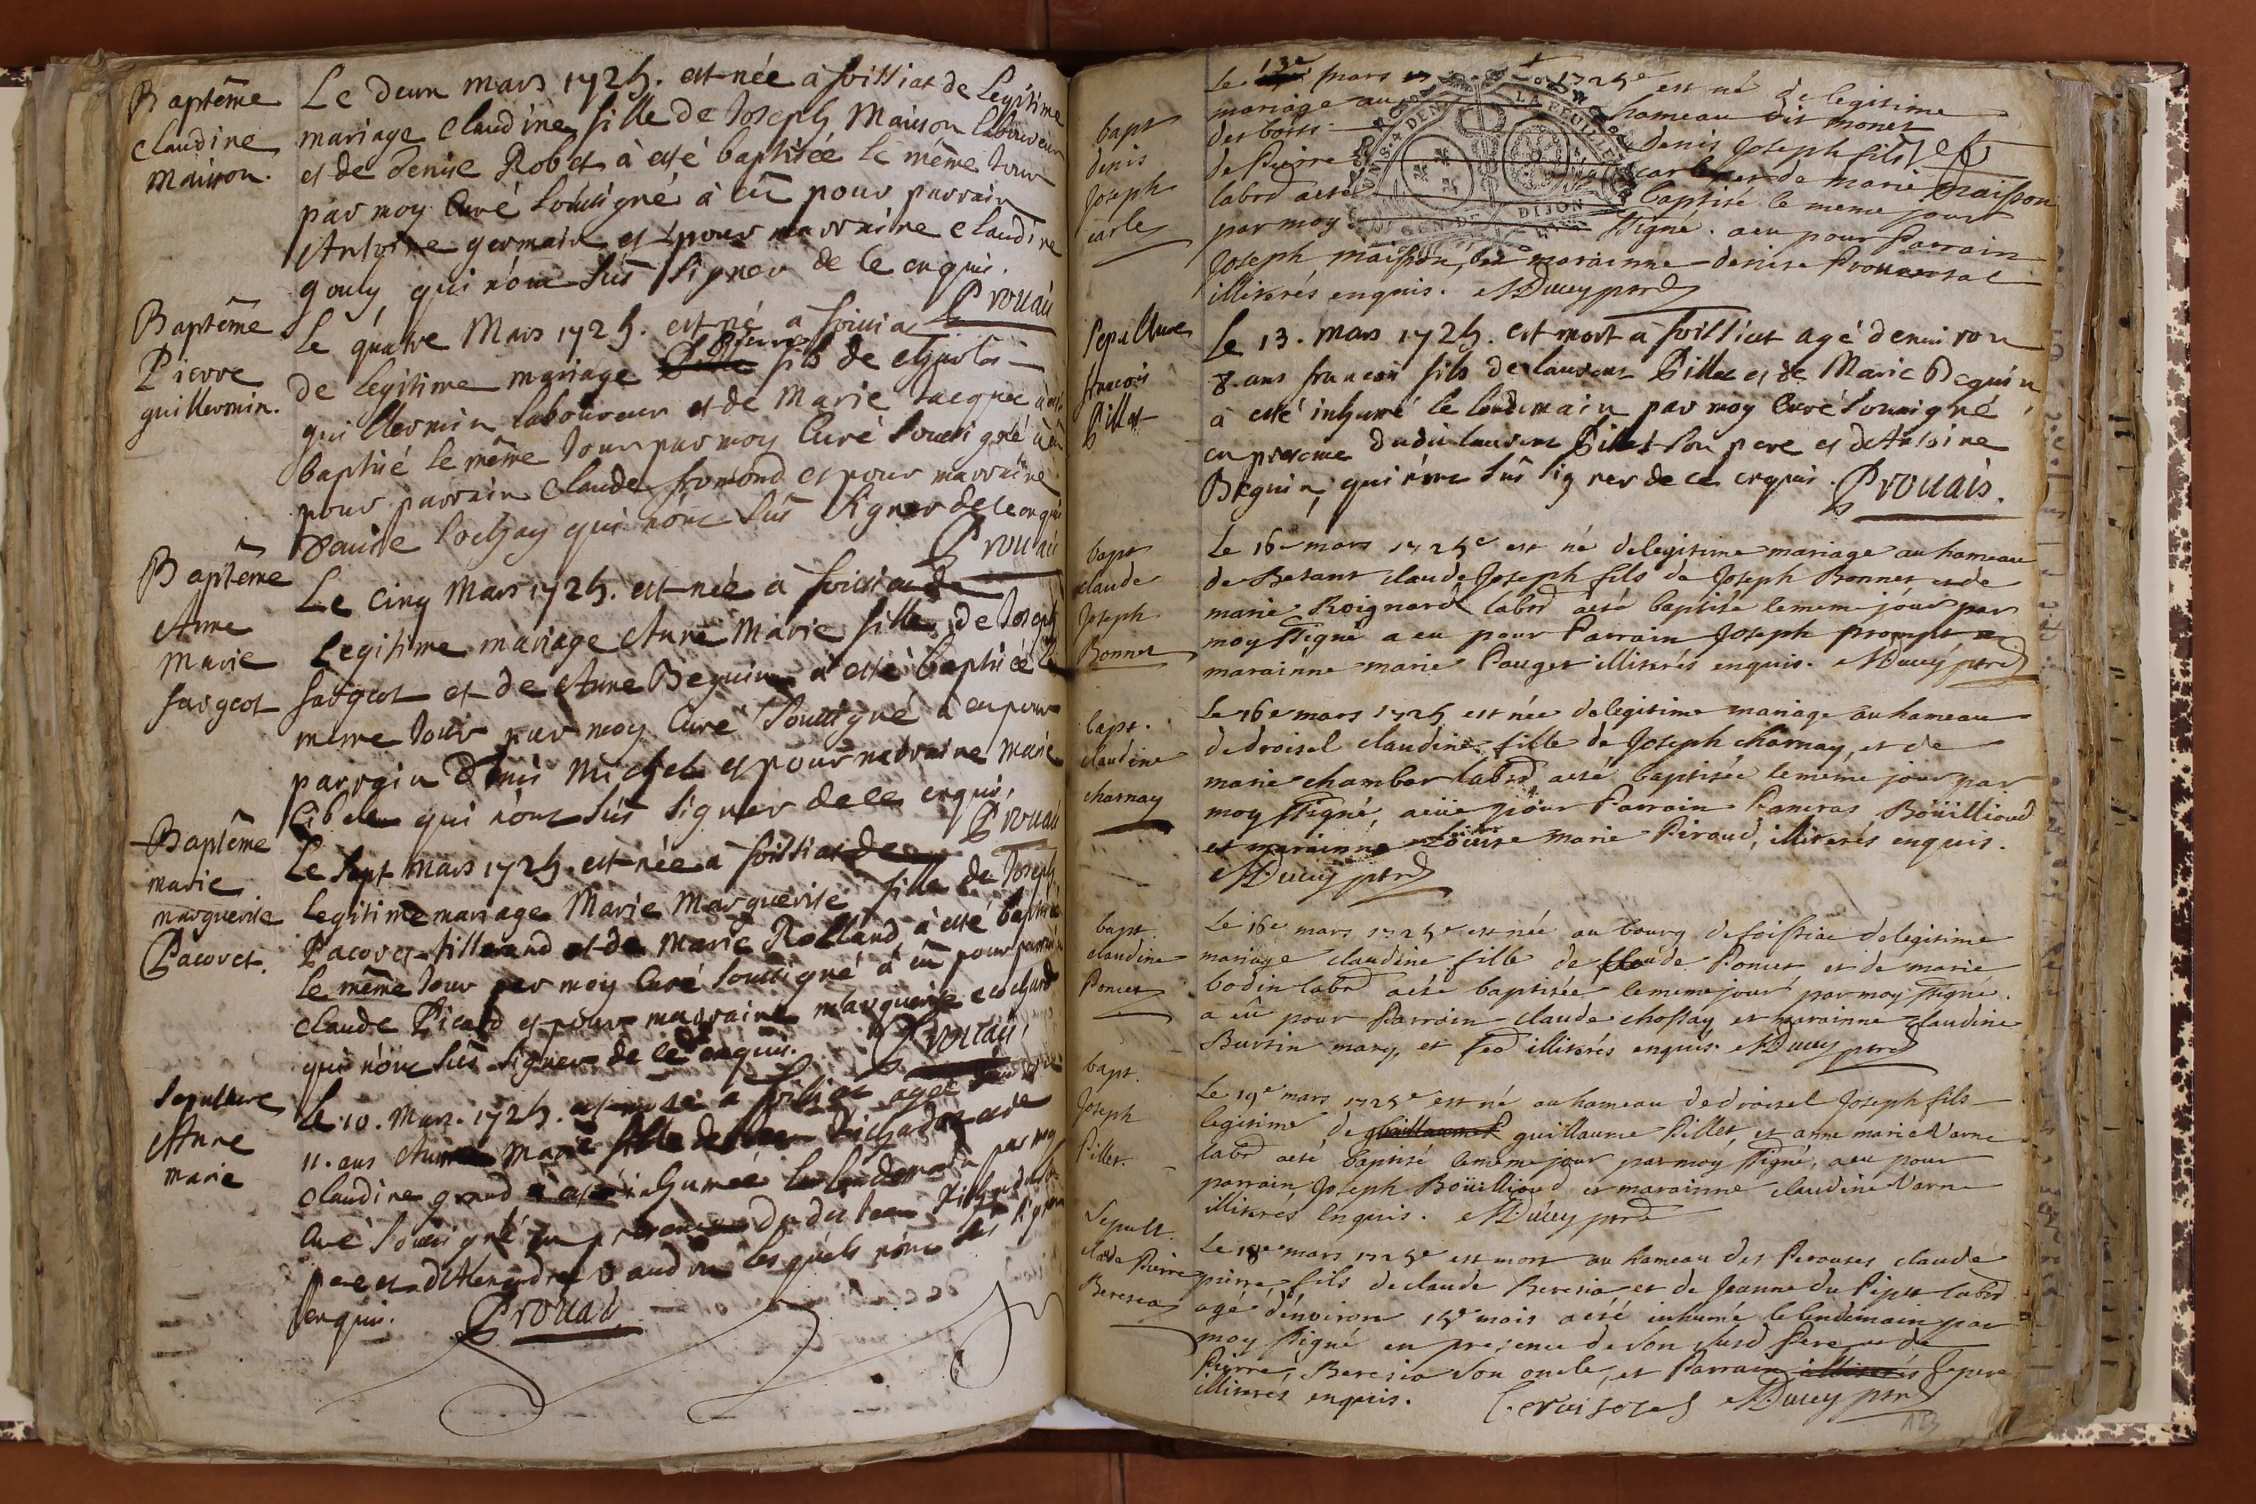 Baptême
Claudine
Maison.
Le deux mars 1725. est née à soissiat de Legitime
mariage Claudine fille de Joseph Maison laboureur
et de denise Robet à esté baptisée le même Jour
par moy Curé soussigné à eû pour parrain
Antoine germain et pour marraine Claudine
gouly qui n'ont sus signer de ce enquis.
Prouais
Baptême
Pierre
guillermin.
Le quatre Mars 1725. est né a soissia
de legitime mariage Pierre fils de
guillermin laboureur et de Marie Jacquet à esté
baptisé le même Jour par moy Curé soussigné à eû
pour parrain Claude fromond et pour marraine
Denise Lochay qui n'ont sus signer de ce enquis
Prouais
Baptême
Anne
Marie
sargeot
Le cinq Mars 1725. est née à soissia de
Legitime mariage Anne Marie fille de Joseph
sargeot et de Anne Beguin à esté baptisée le
même Jour par moy Curé soussigné à eu pour
parrain Denis Michel et pour marraine Marie
qui n'ont sus signer de ce enquis,
Prouais
Baptême
marie
marguerite
Pacoret.
Le sept Mars 1725. est née a soissiat de
legitime mariage Marie Marguerite fille de Joseph
Pacoret tisserand et de Marie Rolland à esté baptisée
le même Jour par moy Curé soussigné à eû pour parrain
Claude Picard et pour marraine marguerite cochard
qui n'ont sus signer de ce enquis.
Prouais
Sepulture
Anne
marie
Le 10. Mars. 1725. est morte a soissiat agée d'environ
11. ans Anne Marie fille de
Claudine grand à esté inhumée le lendemain par moy
Curé soussigné en presence dudit
pere et d'Alexandre lesquels n'ont sus signer
enquis. Prouais
bapt
denis
Joseph
carle
Le 13e mars 1725e est né de legitime
mariage au hameau dit monet
des bois denis Joseph fils
de Pierre carle et de marie maisson
labrd aesté baptisé le meme jour
par moy ssigné. a eu pour Parrain
Joseph maisson, et marainne denise
illiterés enquis. Ducey ptre
GEN DE DIJON
Sepulture
francois
Pillet
Le 13. mars 1725. est mort a soissiat agé denviron
8. ans francois fils de laurent Pillet et de Marie Beguin,
à esté inhumé le lendemain par moy Curé soussigné
en presence dudit laurent Pillet son pere et d'Antoine
Beguin, qui n'ont sus signer de ce enquis. Prouais.
bapt
claude
Joseph
Bonnet
Le 16e mars 1725e est né de legitime mariage au hameau
de Besant claude Joseph fils de Joseph Bonnet et de
marie Roignard labrd aesté baptisé le meme jour par
moy ssigné a eu pour Parrain Joseph prompt et
marainne marie Pauget illiterés enquis. Ducey ptre
bapt.
claudine
charnay
Le 16e mars 1725 est née de legitime mariage au hameau
de droisel claudine fille de Joseph charnay, et de
marie chambar labrd aesté baptisée le meme jour par
moy ssigné, a eüe pour Parrain Pancras Boüillioud
et marainne Louise marie Piraud, illiterés enquis.
Ducey ptre
bapt.
claudine
Poncet
Le 16e mars 1725e est née au bourg de soissiac de legitime
mariage claudine fille de claude Poncet et de marie
bodin labrd aesté baptisée le meme jour par moy ssigné.
a eû pour Parrain claude chossay et marainne claudine
Burtin mary, et illiterés enquis Ducey ptre
bapt.
Joseph
Pillet.
Le 19e mars 1725e est né au hameau de droisel Joseph fils
legitime de guillaume Pillet, et anne marie Varne
labrd aesté baptisé le meme jour par moy ssigné, a eu pour
parrain Joseph Boüillioud et marainne claudine Varne
illiterés enquis. Ducey ptre
Sepult.
claude Pierre
Beresia
Le 18e mars 1725e est mort au hameau des Perouses claude
pierre fils de claude Beresia et de Jeanne du Pipet labrd
agé d'environ 15 mois aesté inhumé le lendemain par
moy ssigné en presence de son susd Pere et de
Pierre, Beresia son oncle, et Parrain
illiterés enquis. Ducey ptre